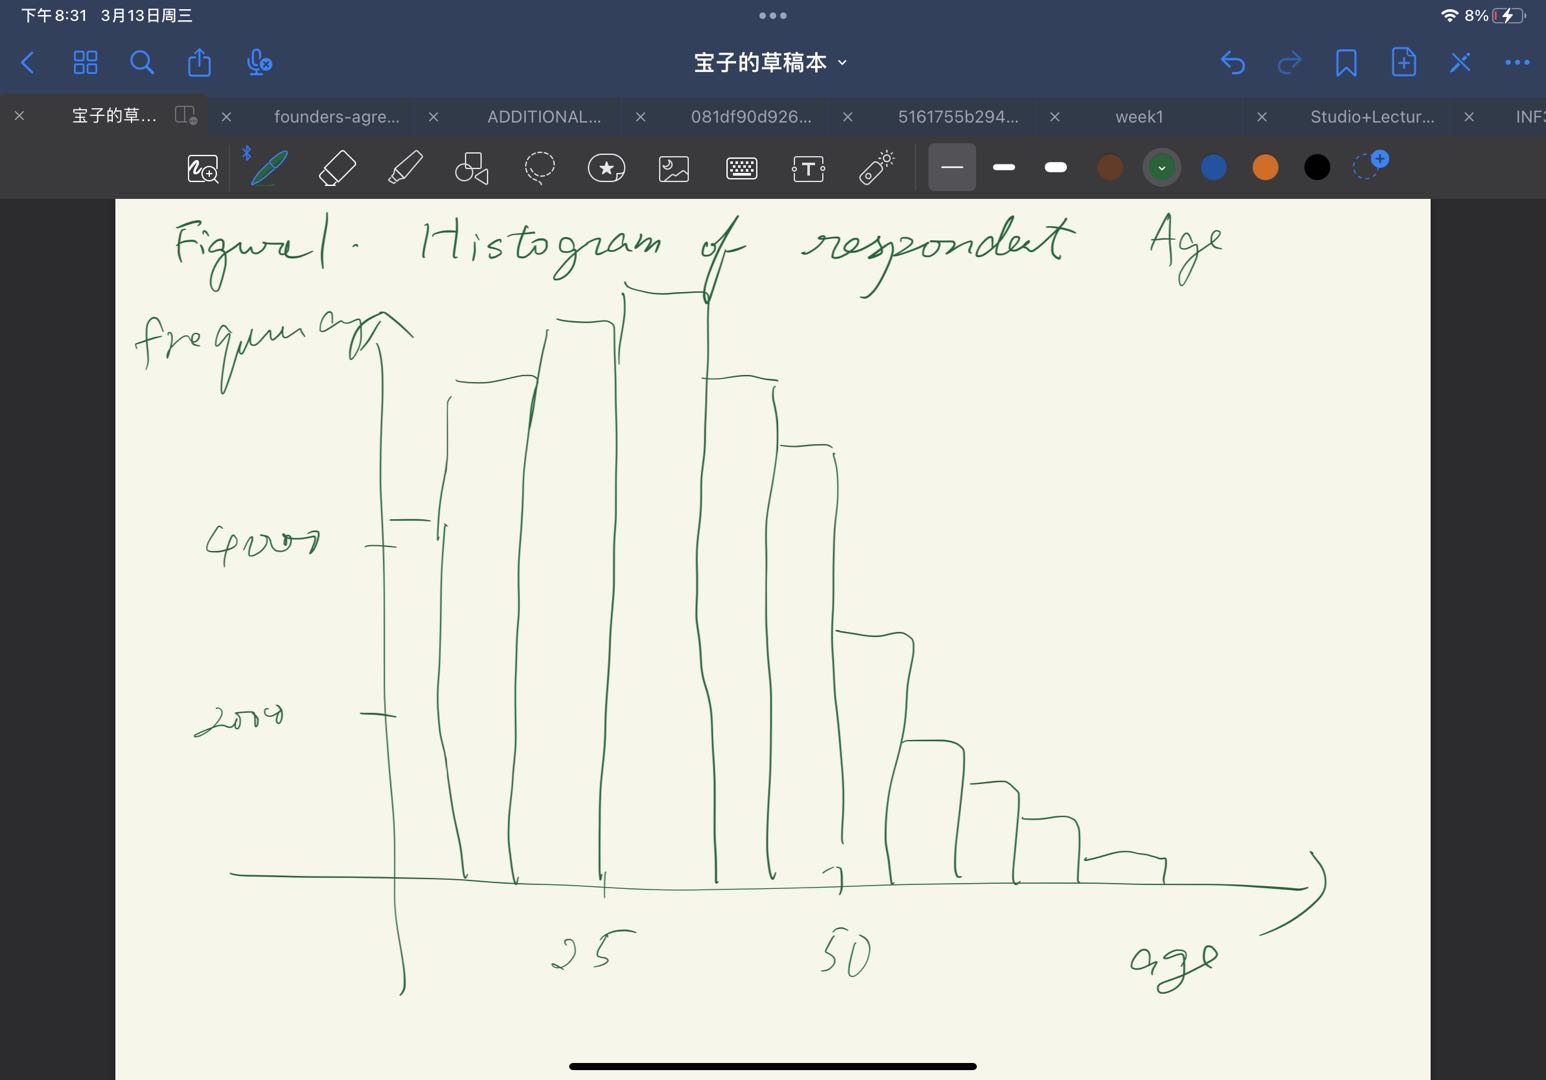 下午8:31 3月13日周三
8%
宝子的草稿本
宝子的草... founders-agre... ADDITIONAL... 081df90d926... 5161755b294... week1 Studio+Lectur... INF3
T
Figure1. Histogram of respondent Age
frequency
4000
2000
25 50 age